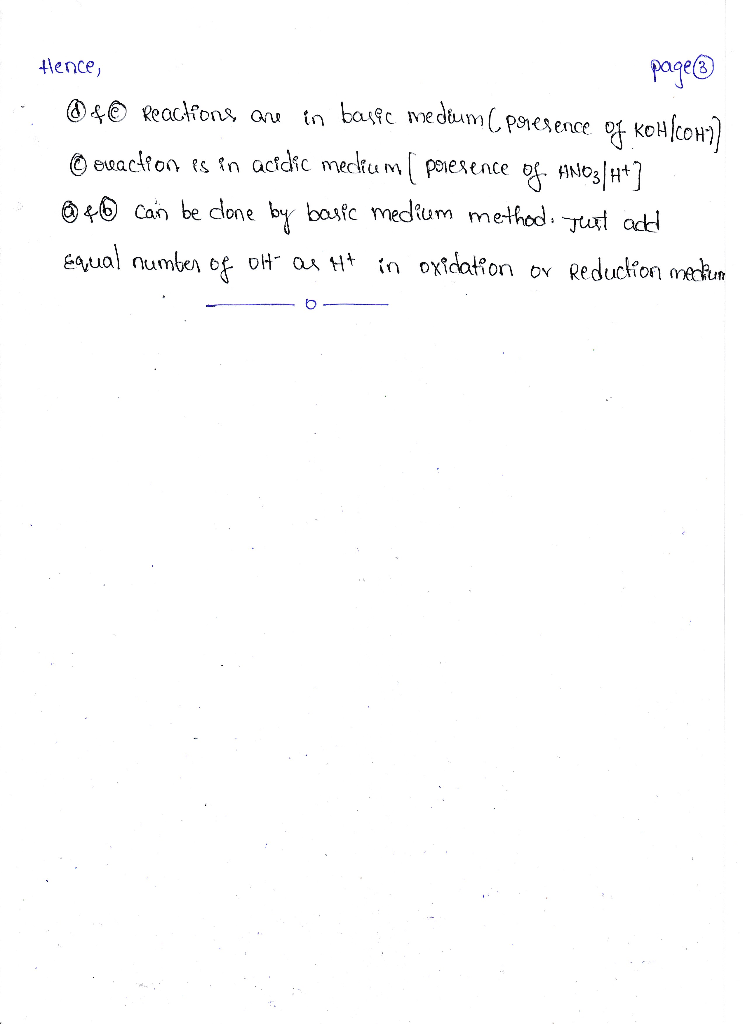 Hence, page ③
ⓓ & ⓔ Reactions are in basic medium (presence of KOH/(OH⁻)]
ⓒ reaction is in acidic medium [presence of HNO₃/H⁺]
ⓐ & ⓑ can be done by basic medium method. Just add
Equal number of OH⁻ as H⁺ in oxidation or Reduction medium